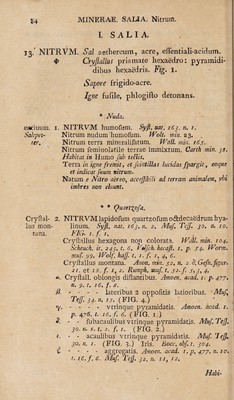 84 MINERAE. SALIA. Nitrum.
I. SALIA.
13. NITRVM. Sal aethereum, acre, eſſentiali-acidum.
Cryſtallus prismate hexaëdro: pyramidi-
dibus hexaëdris. Fig. 1.
Sapore frigido-acre.
Igne fuſile, phlogiſto detonans.
* Nuda.
1. NITRVM humoſum. Syſt. nat. 163. n. 1.
Nitrum nudum humoſum. Wolt. min. 23.
Nitrum terra mineraliſatum. Wolt. min. 165.
Nitrum ſemiuolatile terrae immixtum. Carth. min. 31.
Habitat in Humo ſub tectis.
Terra in igne fremit, et ſcintillas lucidas ſpargit, eoque
et indicat ſuum nitrum.
Natum e Nitro aëreo, acceſſibili ad terram animalem, vbi
imbres non eluunt.
** Quartzoſa.
Cryſtal-
lus mon-
tana.
2. NITRVM lapidoſum quartzoſum octodecaëdrum hya-
linum. Syſt. nat. 163. n. 2. Muſ. Teſſ. 30. n. 10.
Cryſtallus hexagona non colorata. Wolt. min. 104.
Cryſtallus montana.
α. Cryſtall. oblongis diſtantibus. Amoen. acad. 1. p. 477.
lateribus 2 oppoſitis latioribus. Muſ.
Teſſ. 34. n. 13. (FIG. 4.)
vtrinque pyramidatis. Amoen. acad. 1.
p. 476. t. 16. f. 6. (FIG. 1.)
ſubacaulibus vtrinque pyramidatis. Muſ. Teſſ.
(FIG. 2.)
acaulibus vtrinque pyramidatis. Muſ. Teſſ.
(FIG. 3.) Iris.
aggregatis. Amoen. acad. 1. p. 477. n. 10.
t. 16. f. 8. Muſ. Teſſ. 32. n. 11, 12.
Habi-